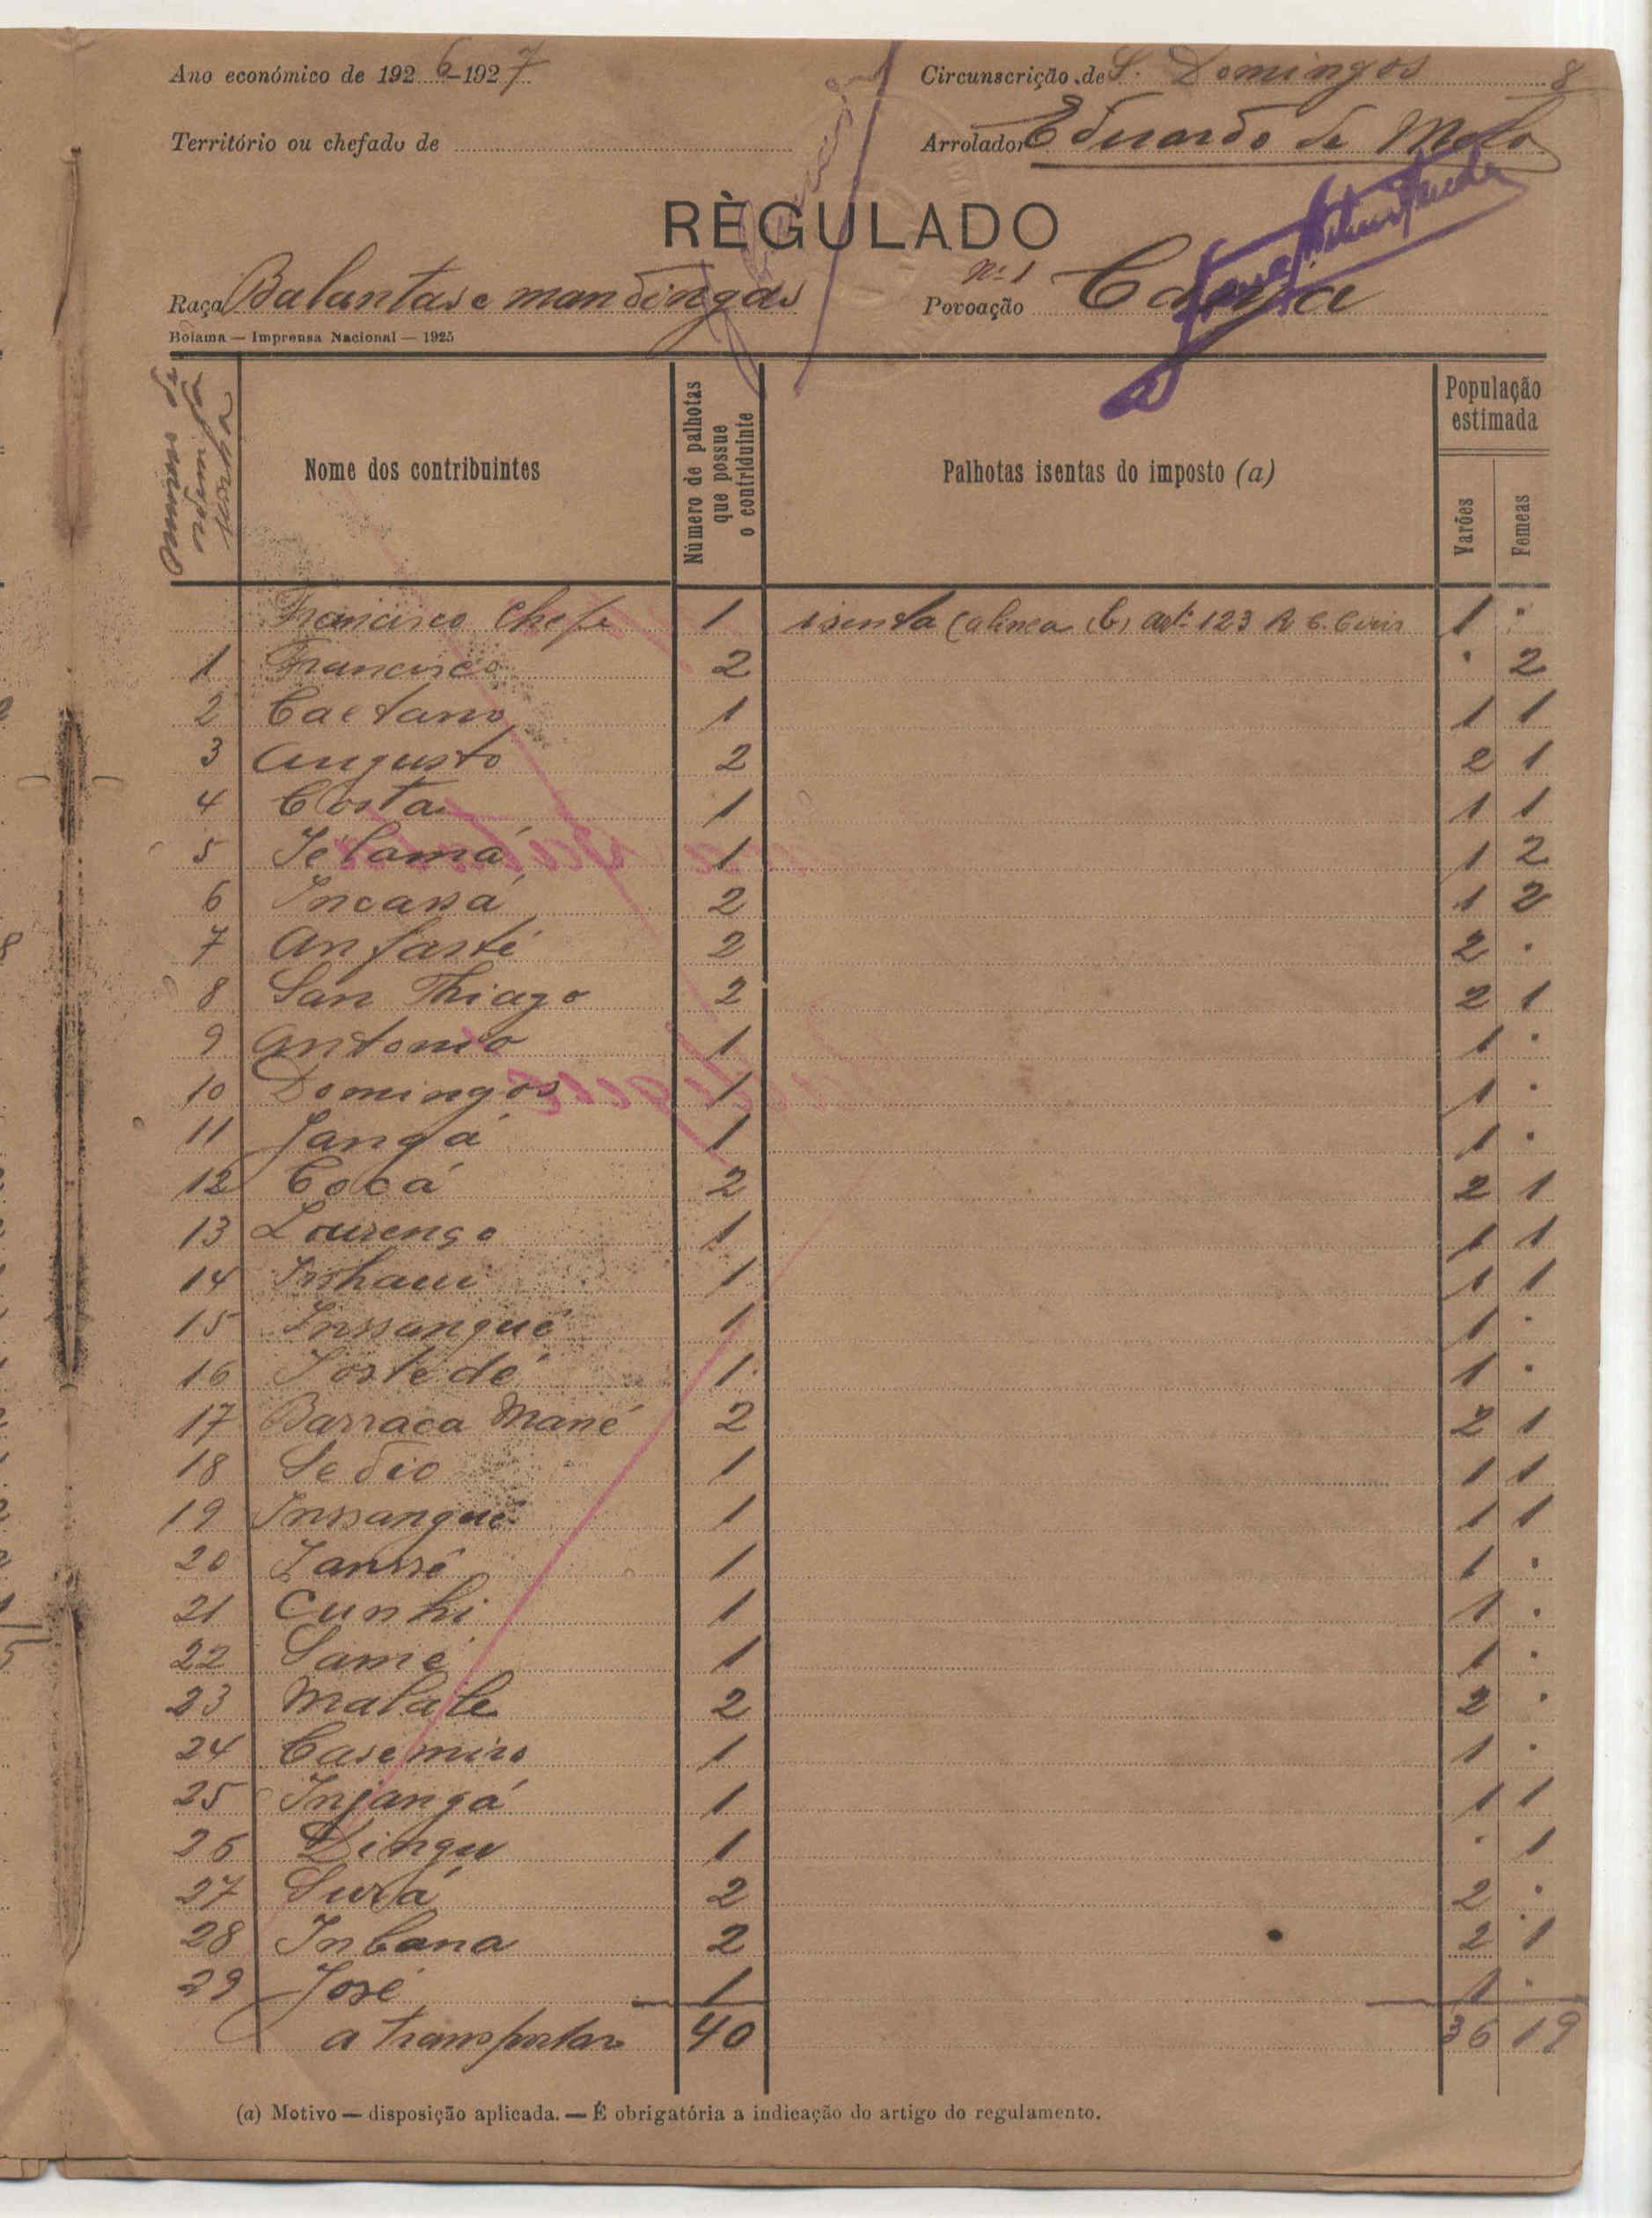 Ano económico de 1926-1927
Circunscrição de S. Domingos 8
Território ou chefado de
Arrolador Eduardo de Melo
RÈGULADO
Raça Balantas e mandingas
Nº 1
Povoação
Bolama — Imprensa Nacional — 1925
Numero de
Nome dos contribuintes
Número de palhotas que possue o contriduinte
Palhotas isentas do imposto (a)
População estimada
Varões
Femeas
Francisco Chefe 1 isenta (alinea (b) artº 123 R C. Civis 1 "
1 Francisco 2 " 2
2 Caetano 1 1 1
3 Augusto 2 2 1
4 Costa 1 1 1
5 Jelamá 1 1 2
6 Incassá 2 1 2
7 Anfasté 2 2 "
8 San Thiago 2 2 1
9 Antonio 1 1 "
10 Domingos 1 1 "
11 Jangá 1 1 "
12 Cocá 2 2 1
13 Lourenço 1 1 1
14 1 1 1
15 Inssangué 1 1 "
16 1 1 "
17 Barraca Mané 2 2 1
18 Sedio 1 1 1
19 Inssangué 1 1 1
20 Janssé 1 1 "
21 Cunhi 1 1 "
22 Samé 1 1 "
23 Malate 2 2 "
24 Casemiro 1 1 "
25 Injangá 1 1 1
26 Dingu 1 " 1
27 Surá 2 2 "
28 Inbana 2 2 1
29 José 1 1 "
a transportar 40 36 19
(a) Motivo — disposição aplicada. — É obrigatória a indicação do artigo do regulamento.